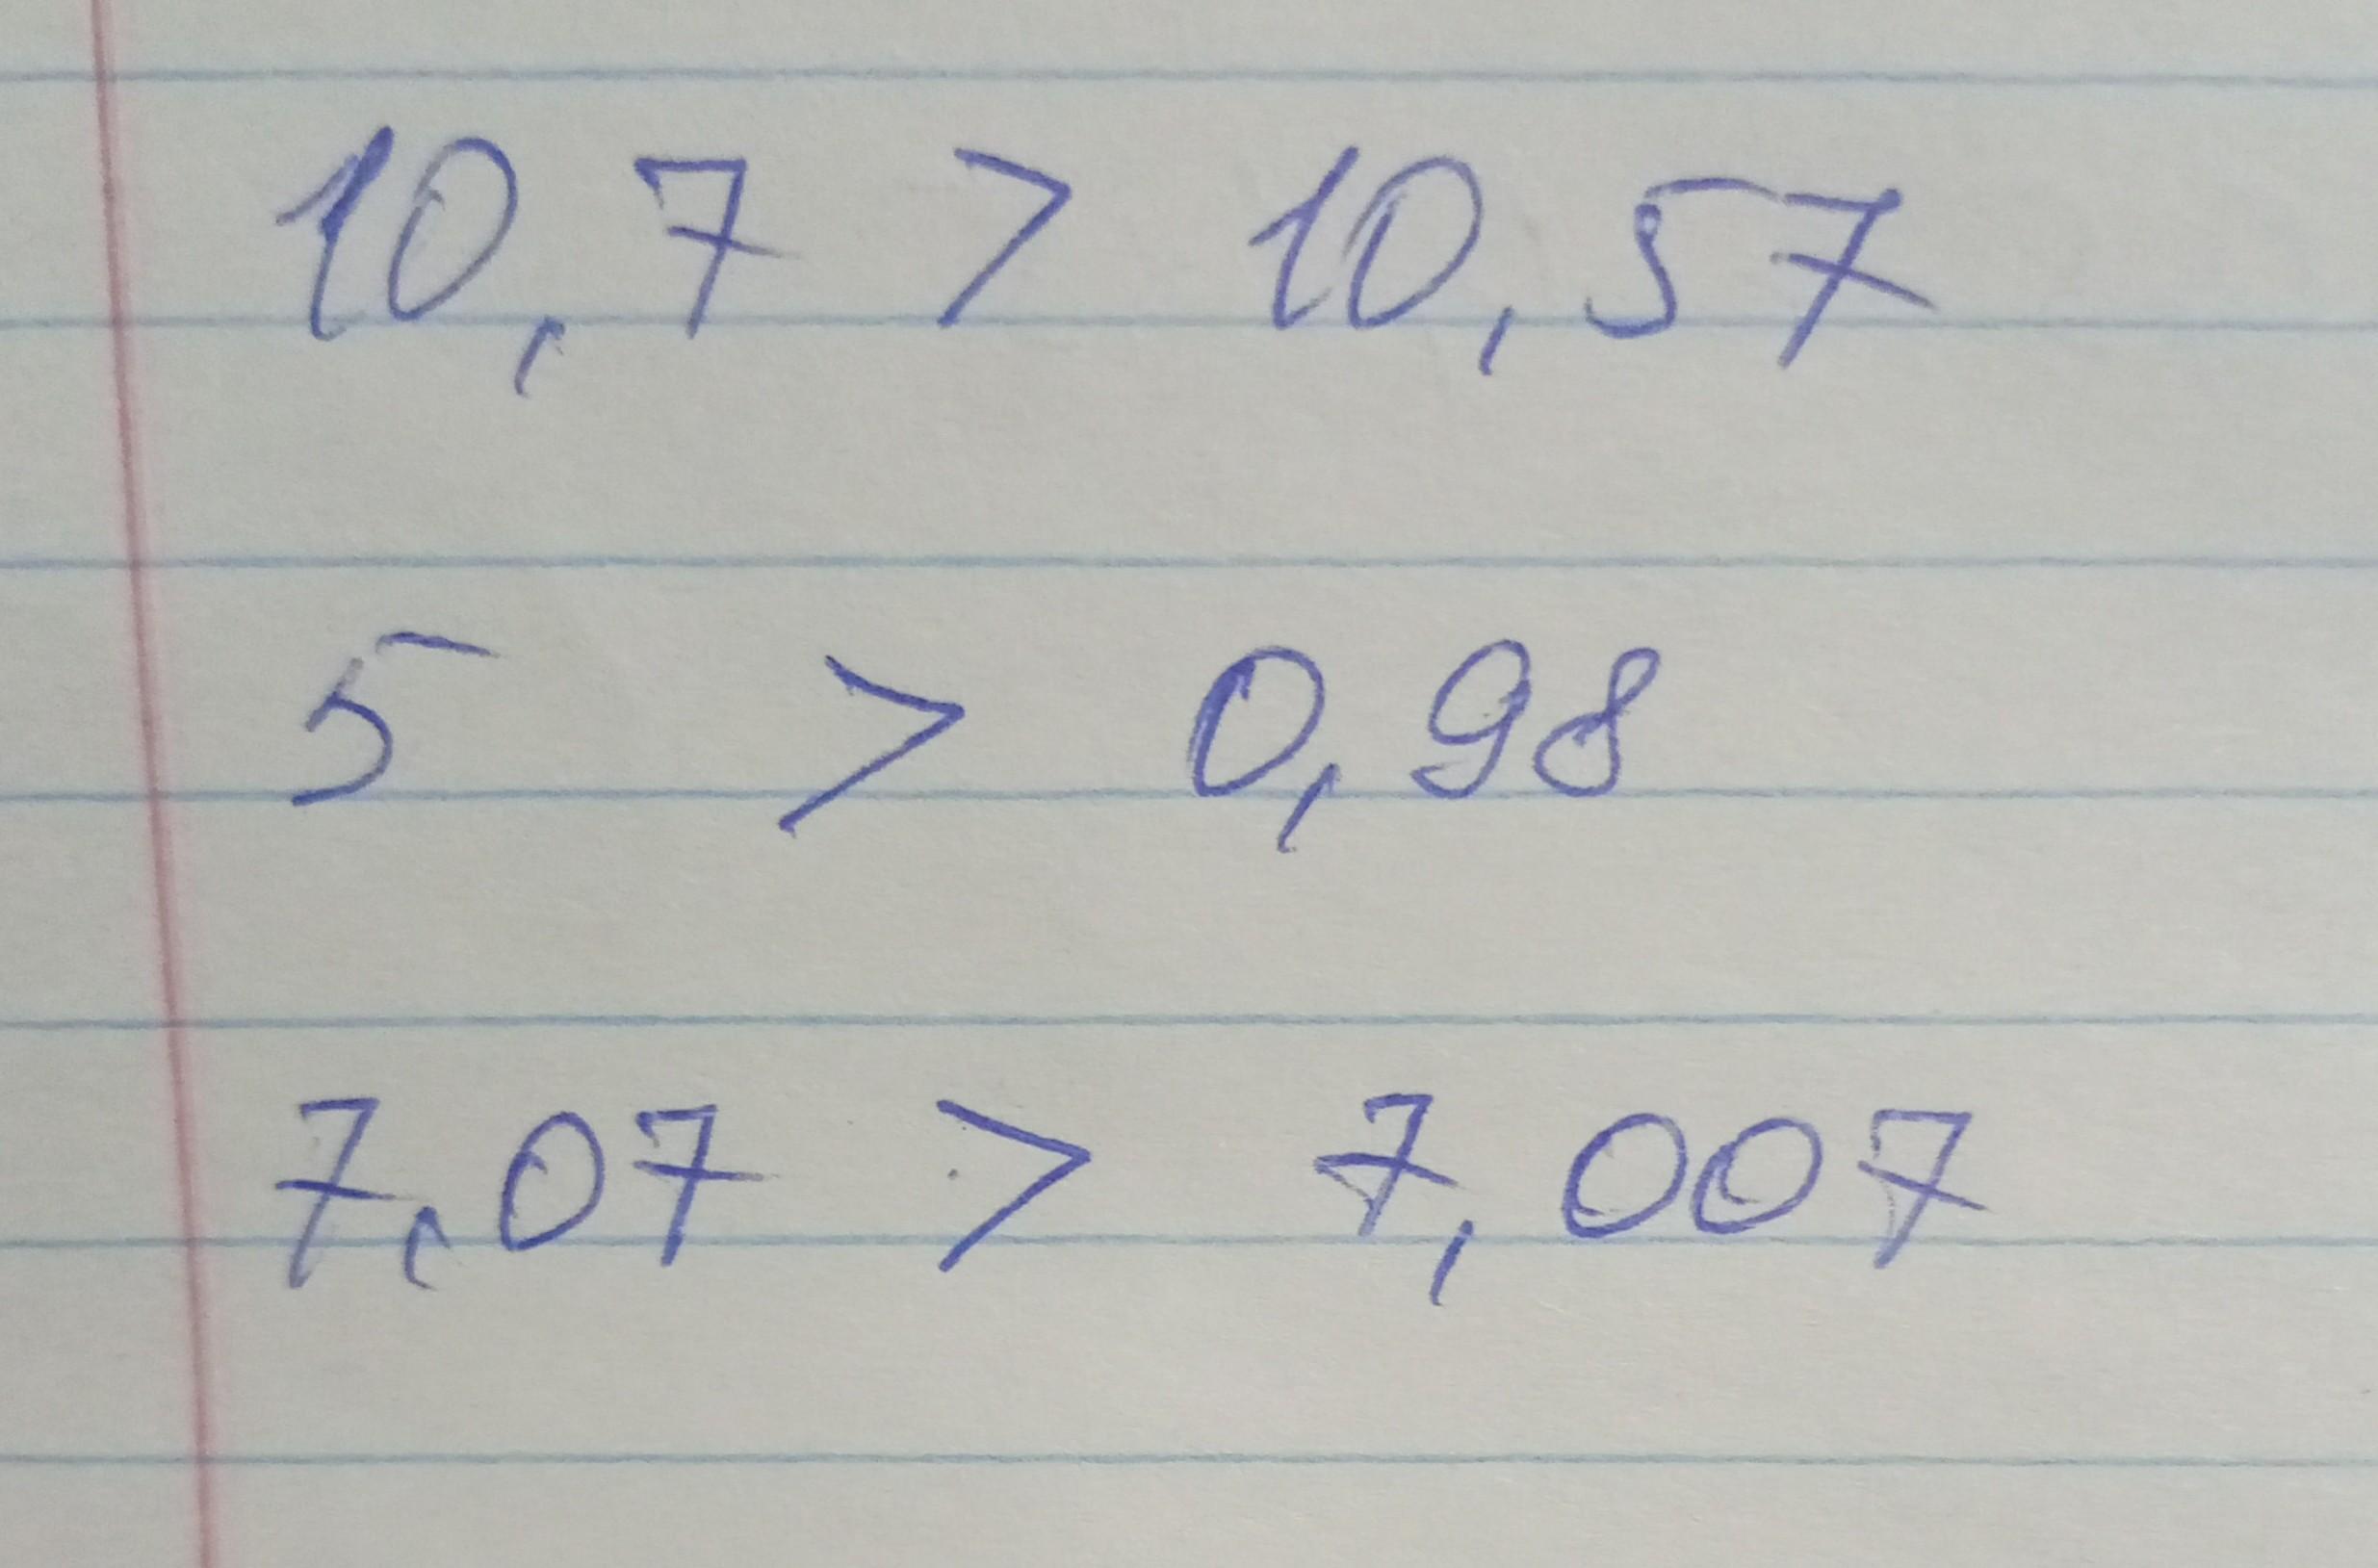 10,7 > 10,57
5 > 0,98
7,07 > 7,007